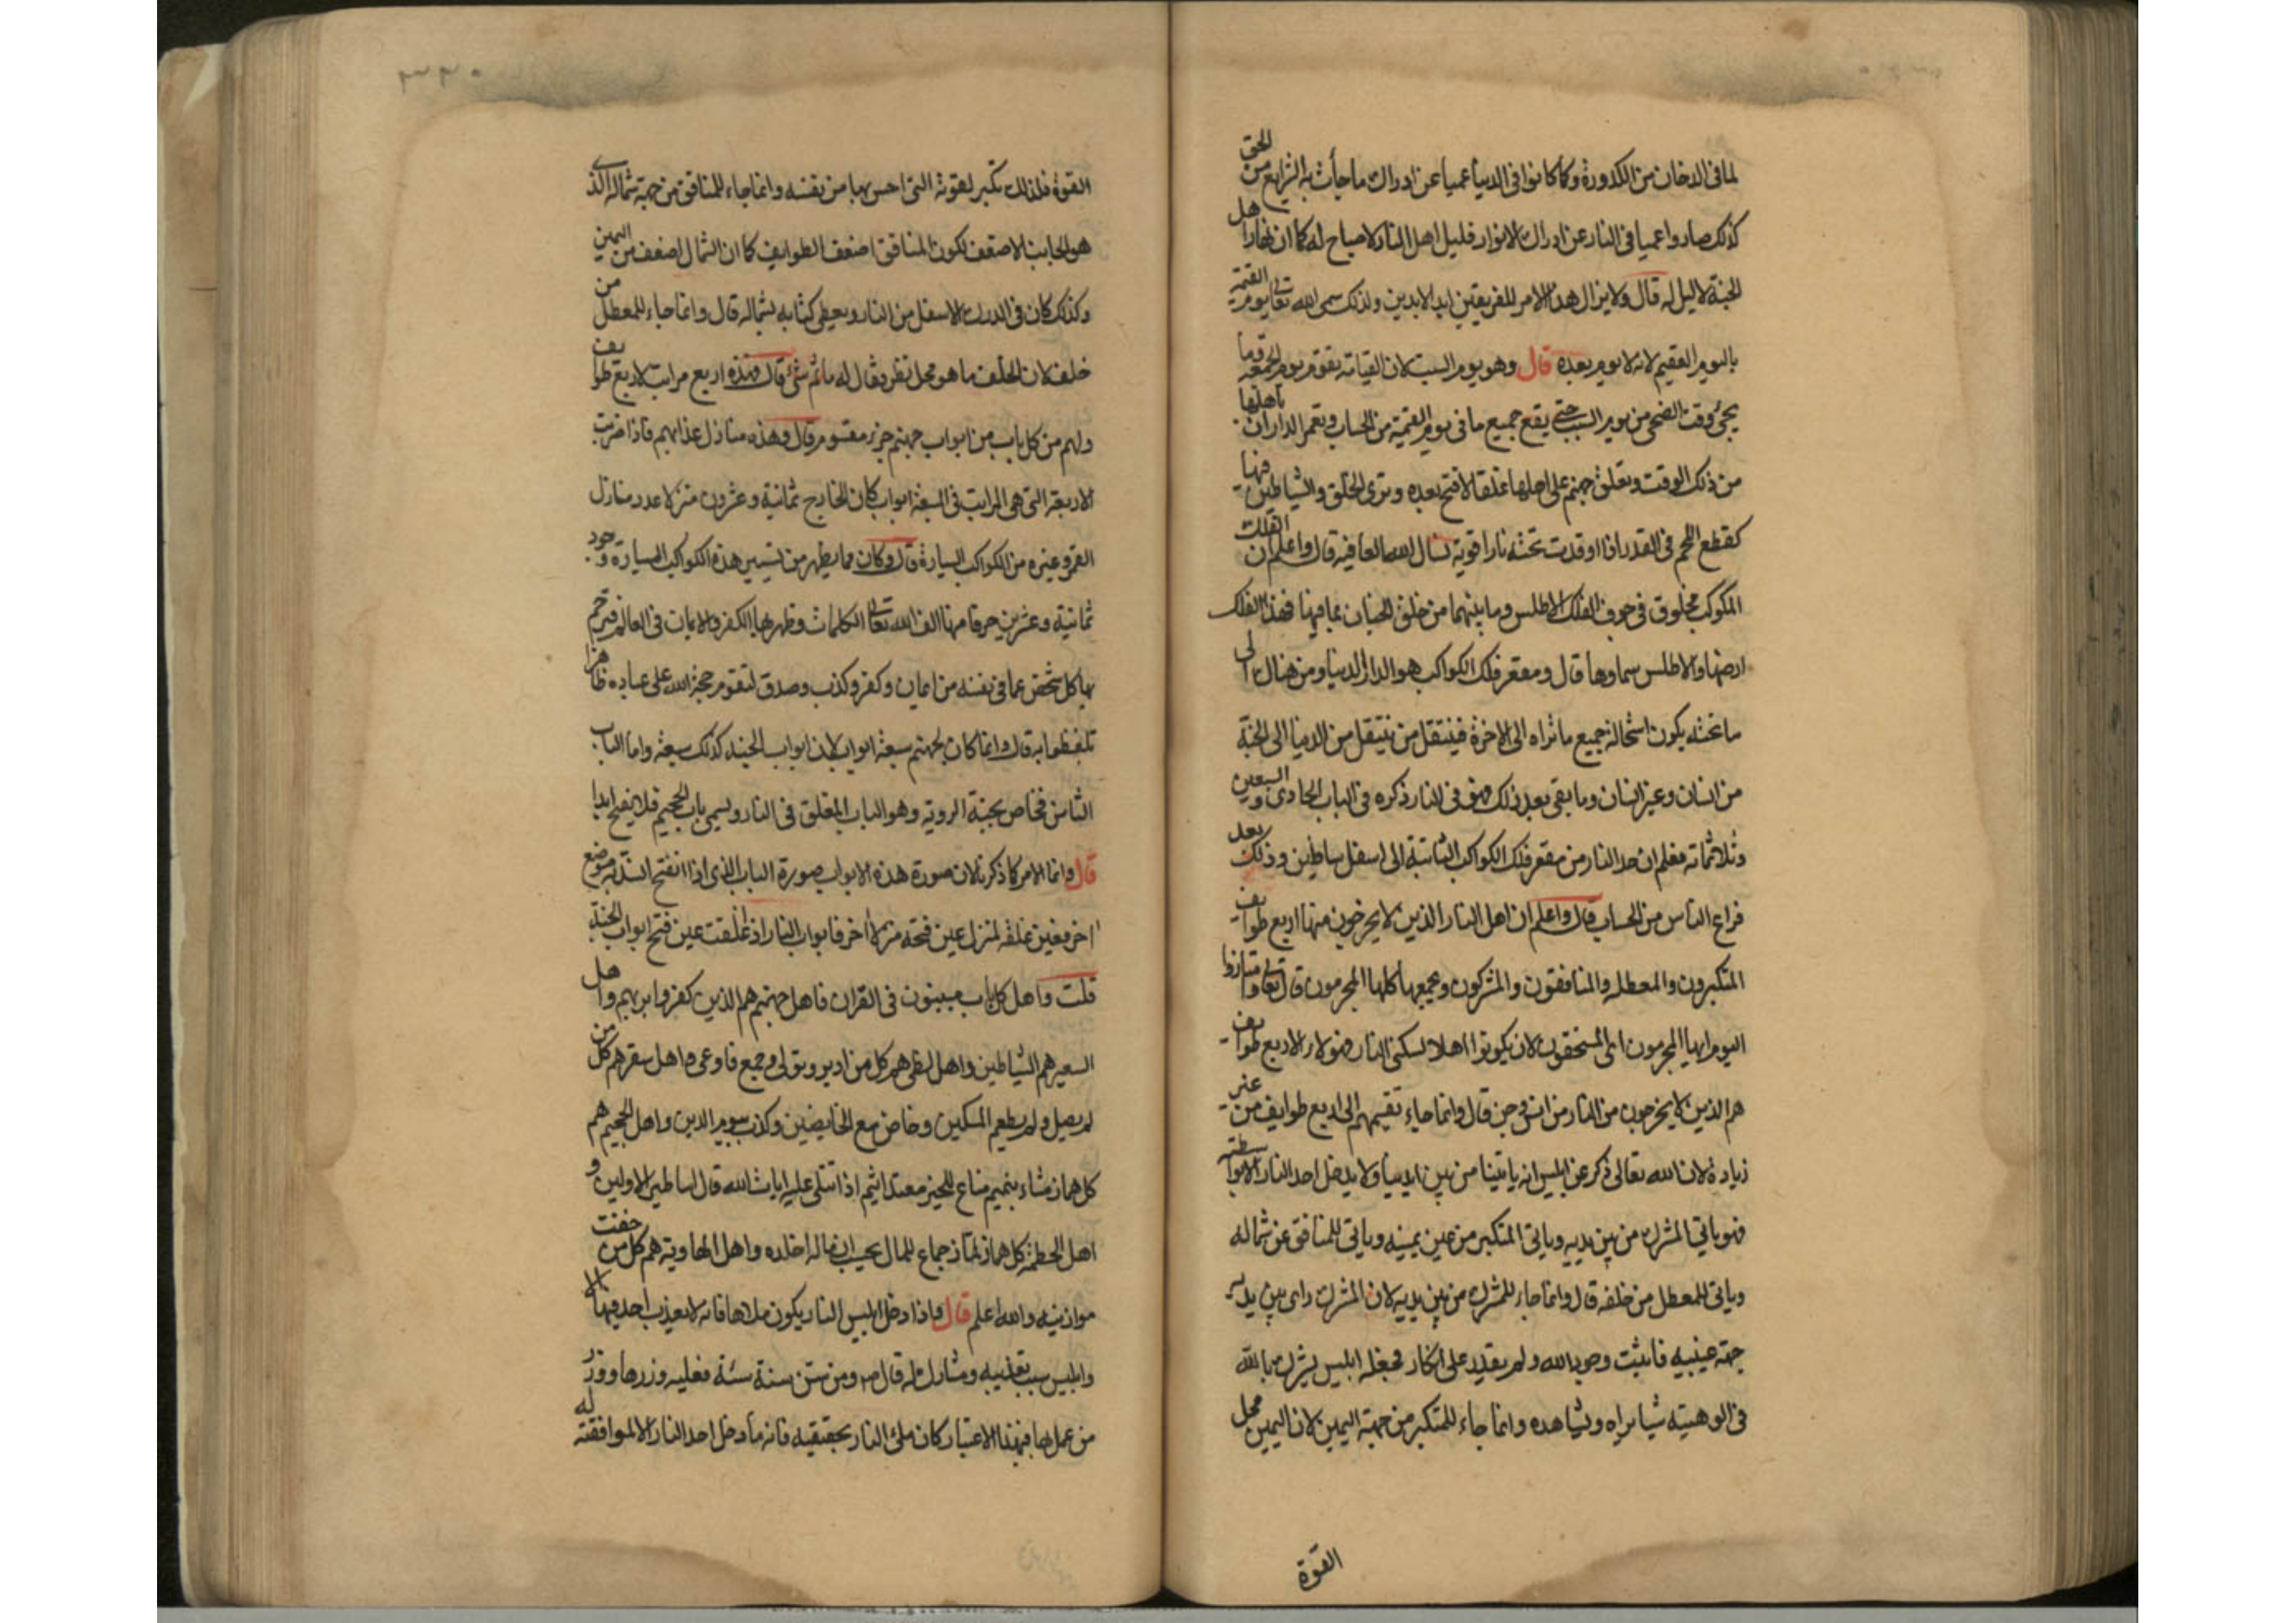 لما فى الدخان من الكدورة وكما كانوا فى الدنيا عميا عن ادراك ما جأت به الشرايع من الحق
كذلك صاروا عميا فى النار عن ادراك الانوار فليل اهل النار لا صباح له كما ان نهار اهل
الجنة لا ليل له قال ولا يزال هذا الامر للفريقين ابد الابدين ولذلك سمى الله تعالى يوم القيمة
باليوم العقيم لانه لا يوم بعده قال وهو يوم السبت لان القيامة يقوم يوم الجمعة فما
يجئ وقت الضحى من يوم السبت حتى يقع جميع ما فى يوم القيمة من الحساب ويعمر الداران باهلها
من ذلك الوقت ويغلق جهنم على اهلها غلقا لا فتح بعده وترى الخلق والشياطين فيها
كقطع اللحم فى القدر اذا اوقدت تحته نارا قوية نسال الله العافيه قال واعلم ان الفلك
المكوكب مخلوق فى جوف الفلك الاطلس وما بينهما من خلق الجنان بما فيها فهذا الفلك
ارضها والاطلس سماوها قال ومقعر فلك الكواكب هو الدار الدنيا ومن هناك الى
ما تحته يكون استحالة جميع ما تراه الى الاخرة فينتقل من ينتقل من الدنيا الى الجنة
من انسان وغير انسان وما بقى بعد ذلك فهو فى النار ذكره فى الباب الحادى والسبعين
وثلاثمائه فعلم ان حد النار من مقعر فلك الكواكب الثابتة الى اسفل سافلين وذلك بعد
فراغ الناس من الحساب قال واعلم ان اهل النار الذين لا يخرجون منها اربع طوايف
المتكبرون والمعطله والمنافقون والمشركون ويجمعها كلها المجرمون قال تعالى وامتازوا
اليوم ايها المجرمون اى المستحقون لان يكونوا اهلا لسكنى النار فهولاء الاربع طوايف
هم الذين لا يخرجون من النار من انس وجن قال وانما جاء تقسيمهم الى اربع طوايف من غير
زيادة لان الله تعالى ذكر عن ابليس انه ياتينا من بين ايدينا ولا يدخل احد النار الا بواسطته
فهو ياتى المشرك من بين يديه وياتى المتكبر من عين يمينه وياتى للمنافق عن شماله
وياتى للمعطل من خلفه قال وانما جاء للمشرك من بين يديه لان المشرك راى بين يديه
جهة عينيه فاثبت وجود الله ولم يقدر على انكار فجعله ابليس يشرك بالله
فى الوهيته شيا يراه ويشاهده وانما جاء للمتكبر من جهة اليمين لان اليمين محل
القوة
٣٣٠
القوة فلذلك تكبر لقوته التى احس بها من نفسه وانما جاء للمنافق من جهة شماله الذى
هو الجانب الاضعف لكون المنافق اضعف الطوايف كما ان الشمال اضعف من اليمين
وكذلك كان فى الدرك الاسفل من النار ويعطى كتابه بشماله قال وانما جاء للمعطل من
خلف لان الخلف ما هو محل نظر فقال له ما ثم شئ قال فهذه اربع مراتب لاربع طوايف
ولهم من كل باب من ابواب جهنم جزء مقسوم قال وهذه منازل عذابهم فاذا ضربت
الاربعة التى هى المراتب فى السبعة ابواب كان الخارج ثمانية وعشرون منزلا عدد منازل
القمر وغيره من الكواكب السيارة قال وكان مما يظهر من تسيير هذه الكواكب السيارة وجود
ثمانية وعشرين حرفا منها الف الله تعالى الكلمات وظهر بها الكفر والايمان فى العالم فترجم
بها كل شخص عما فى نفسه من ايمان وكفر وكذب وصدق لتقوم حجة الله على عباده ظاهرا
تلفظوا به قال وانما كان لجهنم سبعة ابواب لان ابواب الجنة كذلك سبعة واما الباب
الثامن فخاص بجنة الروية وهو الباب المغلق فى النار ويسمى باب الحجيم فلا يفتح ابدا
قال وانما الامر كما ذكرنا لان صورة هذه الابواب صورة الباب الذى اذا انفتح انسد به موضع
اخر فعين غلقه لمنزل عين فتحه منزلا اخر فابواب النار اذ غلقت عين فتح ابواب الجنة
قلت واهل كل باب مبينون فى القران فاهل جهنم هم الذين كفروا بربهم واهل
السعير هم الشياطين واهل لظى هم كل من ادبر وتولى وجمع فاوعى واهل سقر هم كل من
لم يصل ولم يطعم المسكين وخاض مع الخايضين وكذب بيوم الدين واهل الجحيم هم
كل هماز مشاء بنميم مناع للخير معتد اثيم اذا تتلى عليه ايات الله قال اساطير الاولين و
اهل الحطمة كل هماز لماز جماع للمال يحسب ان ماله اخلده واهل الهاوية هم كل من خفت
موازينه والله اعلم قال فاذا دخل ابليس النار يكون ملاها فانه لا يعذب احد فيها الا
وابليس سبب تعذيبه ومشارك له قال ص ومن سن سنة سئة فعليه وزرها ووزر
من عمل بها فبهذا الاعتبار كان ملئ النار بحقيقيه فانه ما دخل احد النار الا لموافقته له